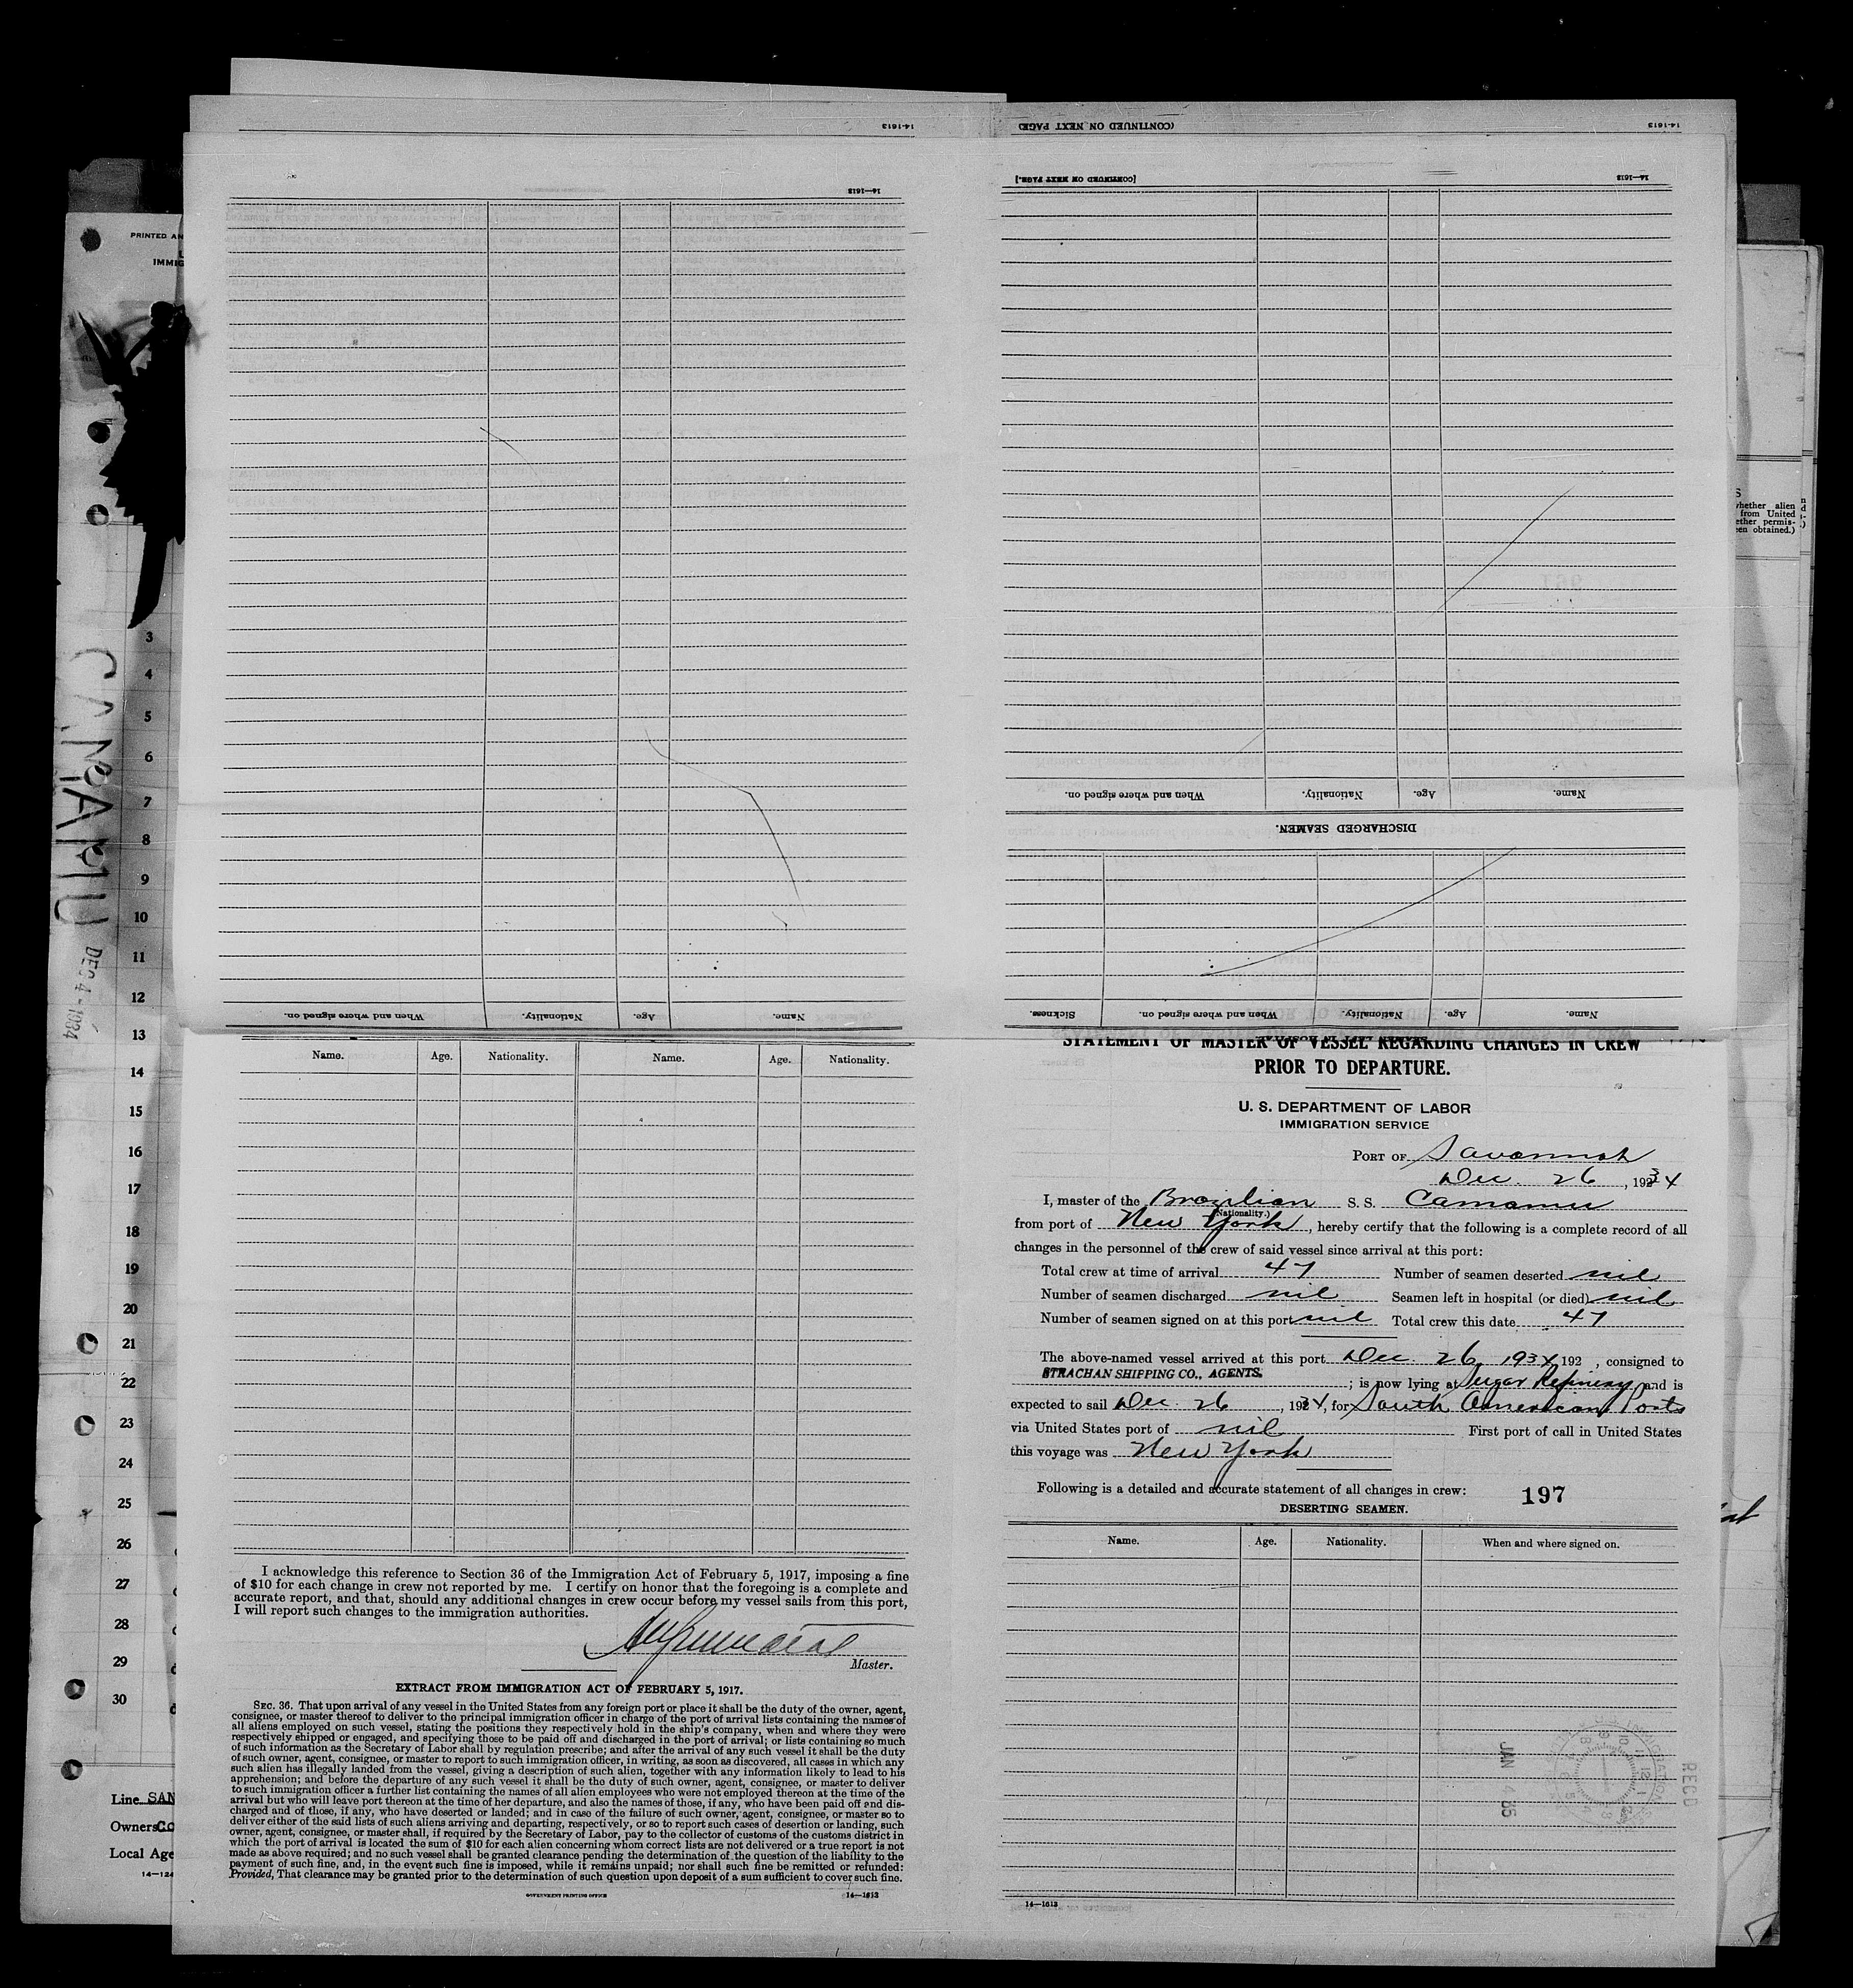 14-1613
(CONTINUED ON NEXT PAGE)
14-1613
14—1613
[CONTINUED ON NEXT PAGE.]
14—1613
PRINTED AN
IMMIG
S
whether alien
from United
ether permis-
een obtained.)
CAMAMU
DEC 4 - 1934
3
4
5
6
7
8
9
10
11
12
13
14
15
16
17
18
19
20
21
22
23
24
25
26
27
28
29
30
Line SAN
Owners Co
Local Age
14—124
When and where signed on. Nationality. Age. Name.
DISCHARGED SEAMEN.
Sickness. When and where signed on. Nationality. Age. Name.
When and where signed on. Nationality. Age. Name.
Name. Age. Nationality. Name. Age. Nationality.
I acknowledge this reference to Section 36 of the Immigration Act of February 5, 1917, imposing a fine
of $10 for each change in crew not reported by me. I certify on honor that the foregoing is a complete and
accurate report, and that, should any additional changes in crew occur before my vessel sails from this port,
I will report such changes to the immigration authorities.
Master.
EXTRACT FROM IMMIGRATION ACT OF FEBRUARY 5, 1917.
SEC. 36. That upon arrival of any vessel in the United States from any foreign port or place it shall be the duty of the owner, agent,
consignee, or master thereof to deliver to the principal immigration officer in charge of the port of arrival lists containing the names of
all aliens employed on such vessel, stating the positions they respectively hold in the ship's company, when and where they were
respectively shipped or engaged, and specifying those to be paid off and discharged in the port of arrival; or lists containing so much
of such information as the Secretary of Labor shall by regulation prescribe; and after the arrival of any such vessel it shall be the duty
of such owner, agent, consignee, or master to report to such immigration officer, in writing, as soon as discovered, all cases in which any
such alien has illegally landed from the vessel, giving a description of such alien, together with any information likely to lead to his
apprehension; and before the departure of any such vessel it shall be the duty of such owner, agent, consignee, or master to deliver
to such immigration officer a further list containing the names of all alien employees who were not employed thereon at the time of the
arrival but who will leave port thereon at the time of her departure, and also the names of those, if any, who have been paid off and dis-
charged and of those, if any, who have deserted or landed; and in case of the failure of such owner, agent, consignee, or master so to
deliver either of the said lists of such aliens arriving and departing, respectively, or so to report such cases of desertion or landing, such
owner, agent, consignee, or master shall, if required by the Secretary of Labor, pay to the collector of customs of the customs district in
which the port of arrival is located the sum of $10 for each alien concerning whom correct lists are not delivered or a true report is not
made as above required; and no such vessel shall be granted clearance pending the determination of the question of the liability to the
payment of such fine, and, in the event such fine is imposed, while it remains unpaid; nor shall such fine be remitted or refunded:
Provided, That clearance may be granted prior to the determination of such question upon deposit of a sum sufficient to cover such fine.
GOVERNMENT PRINTING OFFICE 14—1613
STATEMENT OF MASTER OF VESSEL REGARDING CHANGES IN CREW
PRIOR TO DEPARTURE.
U. S. DEPARTMENT OF LABOR
IMMIGRATION SERVICE
PORT OF Savannah
Dec. 26, 1934
I, master of the Brazilian S. S. Camamu
(Nationality.)
from port of New York, hereby certify that the following is a complete record of all
changes in the personnel of the crew of said vessel since arrival at this port:
Total crew at time of arrival 47 Number of seamen deserted nil
Number of seamen discharged nil Seamen left in hospital (or died) nil
Number of seamen signed on at this port nil Total crew this date 47
The above-named vessel arrived at this port Dec 26, 1934 192 , consigned to
STRACHAN SHIPPING CO., AGENTS. ; is now lying at Sugar Refinery and is
expected to sail Dec. 26, 1934, for South American Ports
via United States port of nil First port of call in United States
this voyage was New York
Following is a detailed and accurate statement of all changes in crew: 197
DESERTING SEAMEN.
Name. Age. Nationality. When and where signed on.
JAN 4 35
RECD
14—1613